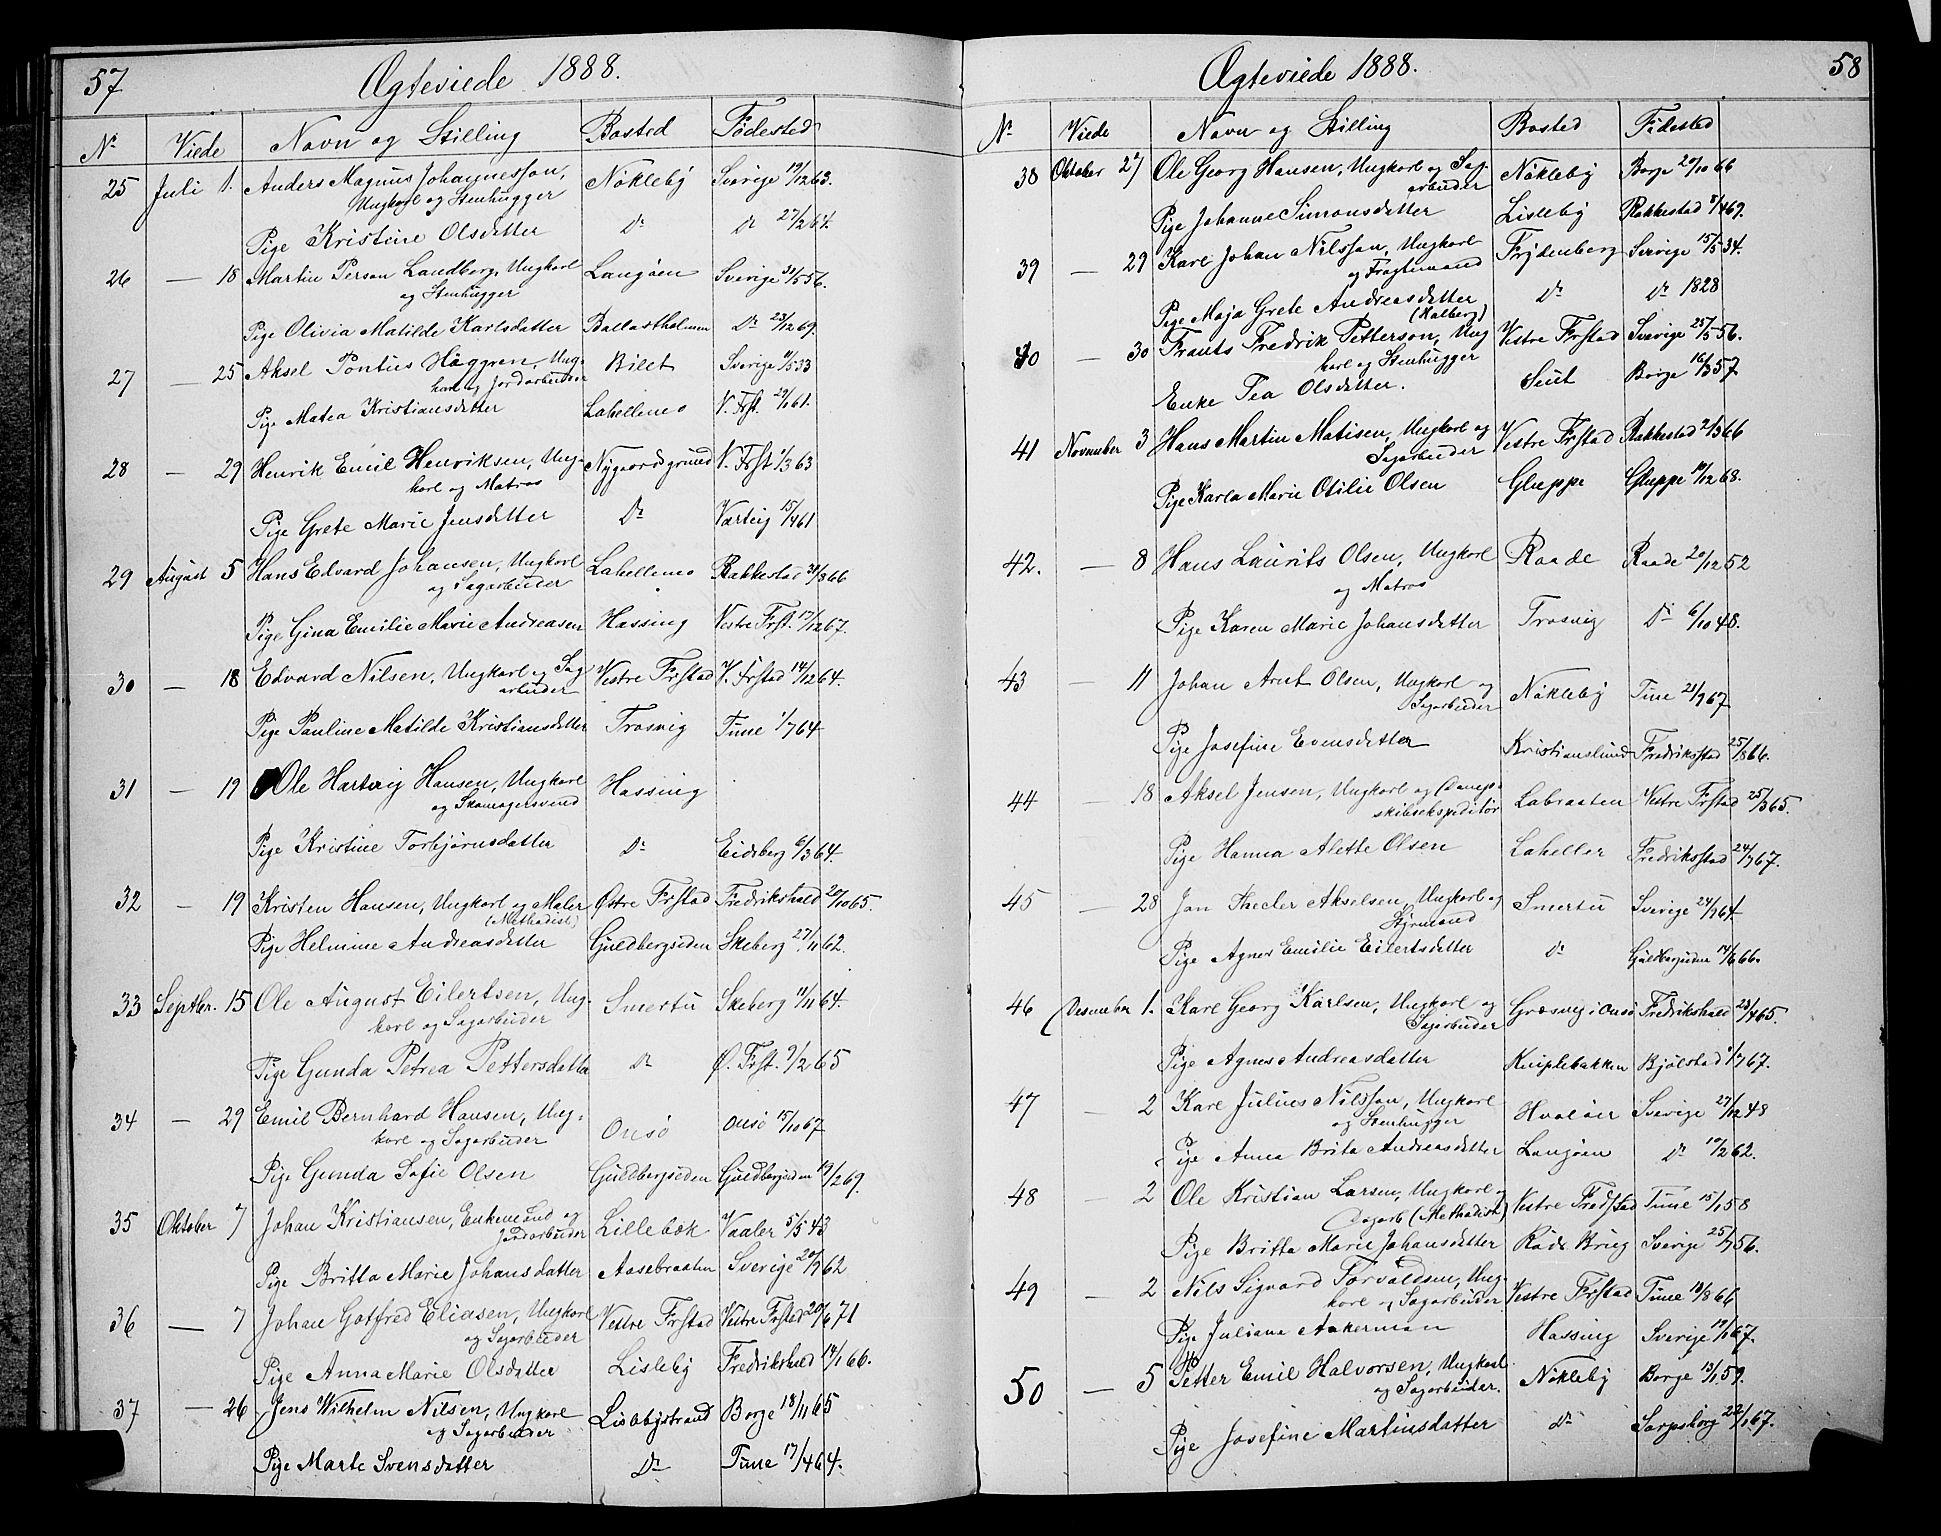 57 Ægteviede 1888.
Nr Viede Navn og Stilling Bosted Fødested
25 Juli 1. Anders Magnus Johannesson, Nøkleby Sverige 19/12 63.
Ungkarl og Stenhugger
Pige Kristine Olsdatter Do Do 27/2 64.
26 — 18 Martin Person Landberg, Ungkarl Langøen Sverige 31/5 56.
og Stenhugger
Pige Olivia Matilde Karlsdatter Ballastholmen Do 23/12 69.
27 — 25 Aksel Pontus Häggren, Ung- Bilet Sverige 11/5 33
karl og Jordarbeider
Pige Matea Kristiansdatter Labellemo V. Frst. 29/1 61.
28 — 29 Henrik Emil Henriksen, Ung- Nygaardsgrund V. Frst 1/3 63
karl og Matros
Pige Grete Marie Jensdatter Do Varteig 15/4 61
29 August 5 Hans Edvard Johansen, Ungkarl Labellemo Rakkestad 31/3 66
og Sagarbeider
Pige Gina Emilie Marie Andreasen Hassing Vestre Frst. 17/12 67.
30 — 18 Edvard Nilsen, Ungkarl og Sag Vestre Frstad V. Frstad 14/12 64.
arbeider
Pige Pauline Matilde Kristiansdatter Trosvig Tune 1/7 64
31 — 19 Ole Hartvig Hansen, Ungkarl Hassing
og Skomagersvend
Pige Kristine Torbjørnsdatter Do Eidsberg 6/3 64.
32 — 19 Kristen Hansen, Ungkarl og Maler Østre Frstad Fredrikshald 20/10 65.
(Methodist)
Pige Helmine Andreasdatter Guldbergsiden Skeberg 27/11 62.
33 Septbr. 15 Ole August Eilertsen, Ung- Smertu Skeberg 11/11 64.
karl og Sagarbeider
Pige Gunda Petrea Pettersdatter Do Ø. Frst. 9/2 65
34 — 29 Emil Bernhard Hansen, Ung- Onsö Onsö 15/10 67
karl og Sagarbeider
Pige Gunda Sofie Olsen Guldbergsiden Guldbergsiden 19/2 69.
35 Oktober 7 Johan Kristiansen, Enkemand og Lillebæk Vaaler 5/5 43
Jordarbeider
Pige Britta Marie Johansdatter Aasebraaten Sverige 20/9 62
36 — 7 Johan Gotfred Eliasen, Ungkarl Vestre Frstad Vestre Frstad 20/6 71
og Sagarbeider
Pige Anna Marie Olsdatter Lisleby Fredrikshald 14/1 66.
37 — 26 Jens Wilhelm Nilsen, Ungkarl Lislebystrand Borge 18/11 65
og Sagarbeider
Pige Marte Svensdatter Do Tune 17/4 64.
Ægteviede 1888. 58
Nr Viede Navn og Stilling Bosted Fødested
38 Oktober 27 Ole Georg Hansen, Ungkarl og Sag- Nøkleby Borge 20/10 66
arbeider
Pige Johanne Simonsdatter Lisleby Rakkestad 8/4 69.
39 — 29 Karl Johan Nilsson, Ungkarl Frydenberg Sverige 15/5 34.
og Fragtemand
Pige Maja Grete Andreasdatter Do Do 1828
(Halberg)
40 — 30 Frants Fredrik Petterson, Ung Vestre Frstad Sverige 25/5 56.
karl og Stenhugger
Enke Tea Olsdatter. Seut Borge 16/3 57
41 November 3 Hans Martin Matisen, Ungkarl og Vestre Frstad Rakkestad 2/3 66
Sagarbeider
Pige Karla Marie Otilie Olsen Gluppe Gluppe 14/12 68.
42. — 8 Hans Laurits Olsen, Ungkarl Raade Raade 20/12 52
og Matros
Pige Karen Marie Johansdatter Trosvig Do 6/10 48.
43 — 11 Johan Arnt Olsen, Ungkarl og Nøkleby Tune 21/9 67
Sagarbeider
Pige Josefine Evensdatter Kristianslund Fredriksstad 25/8 66.
44 — 18 Aksel Jensen, Ungkarl og Damp- Labraaten Vestre Frstad 25/3 65.
skibsekspeditör
Pige Hanna Alette Olsen Laheller Fredriksstad 24/7 67.
45 — 28 Jon Aakselsen, Ungkarl og Smertu Sverige 24/1 64.
Styrmand
Pige Agnes Emilie Eilertsdatter Do Guldbergsiden 14/6 66.
46 Desember 1. Karl Georg Karlsen, Ungkarl og Græsvig i Onsö Fredrikshald 23/4 65.
Sagarbeider
Pige Agnes Andreasdatter Kniplebakken Bjölstad 9/7 67.
47 — 2 Karl Julius Nilsson, Ungkarl Hvaløer Sverige 27/12 48
og Stenhugger
Pige Anna Brita Andreasdatter Langøen Do 10/2 62.
48 — 2 Ole Kristian Larsen, Ungkarl og Vestre Fredstad Tune 15/1 58
Dagarb (Methodist)
Pige Britta Marie Johansdatter Röds Brug Sverige 25/7 56.
49 — 2 Nils Sigvard Torvaldsen, Ung- Vestre Frstad Tune 18/8 66
karl og Sagarbeider
Pige Juliana Aakerman Hassing Sverige 19/1 67.
50 — 5 Petter Emil Halvorsen, Ungkarl Nøkleby Borge 13/1 59.
og Sagarbeider.
Pige Josefine Martinsdatter Do Sarpsborg 22/1 67.